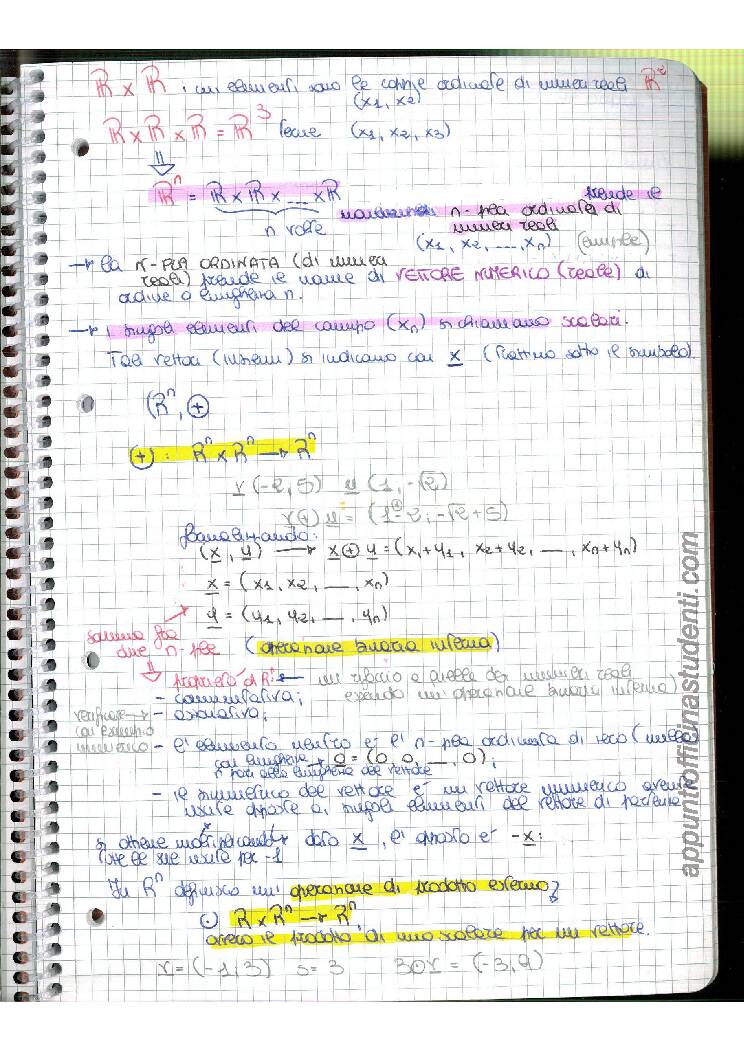 ℝ × ℝ : cui elementi sono le coppie ordinate di numeri reali ℝ²
(x1, x2)
ℝ × ℝ × ℝ = ℝ³ terne (x1, x2, x3)
⇓
ℝⁿ = ℝ × ℝ × ... × ℝ prende il
n volte n-pla ordinata di
numeri reali
(x1, x2, ..., xn) (ennple)
→ la N-PLA ORDINATA (di numeri
reali) prende il nome di VETTORE NUMERICO (reale) di
ordine o lunghezza n.
→ i singoli elementi del campo (xn) si chiamano scalari.
Tali vettori (insiemi) si indicano con x (trattino sotto il simbolo).
(ℝⁿ, ⊕
⊕ : ℝⁿ × ℝⁿ → ℝⁿ
v (-2, 5) u (1, -√2)
v ⊕ u = (1-2, -√2+5)
Generalizzando:
(x, y) → x ⊕ y = (x1+y1, x2+y2, ..., xn+yn)
x = (x1, x2, ..., xn)
y = (y1, y2, ..., yn)
somma fra
due n-ple (operazione binaria interna)
⇓ proprietà di ℝⁿ ← mi rifaccio a quelle dei numeri reali
essendo un'operazione binaria interna)
- commutativa;
verificare → - associativa;
con esempio
numerico - l'elemento neutro è l'n-pla ordinata di zero (nulla)
con lunghezza → 0 = (0, 0, ..., 0);
n pari alla lunghezza del vettore
- il simmetrico del vettore è un vettore numerico avente
valore opposte ai singoli elementi del vettore di partenza
si ottiene moltiplicando dato x, l'opposto è -x:
tutte le sue valute per -1
In ℝⁿ definisco un'operazione di prodotto esterno}
⊙ ℝ × ℝⁿ → ℝⁿ,
ovvero il prodotto di uno scalare per un vettore.
v = (-1, 3) s = 3 3⊙v = (-3, 9)
appuntiofficinastudenti.com